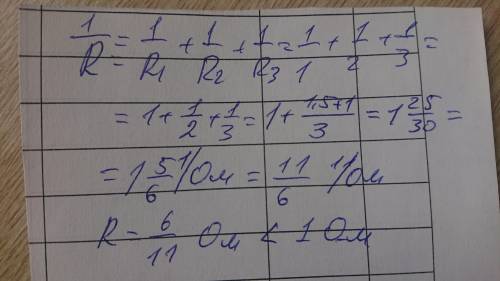 1/R = 1/R1 + 1/R2 + 1/R3 = 1/1 + 1/2 + 1/3 =
= 1 + 1/2 + 1/3 = 1 + 1,5+1/3 = 1 25/30 =
= 1 5/6 1/Ом = 11/6 1/Ом
R = 6/11 Ом < 1 Ом